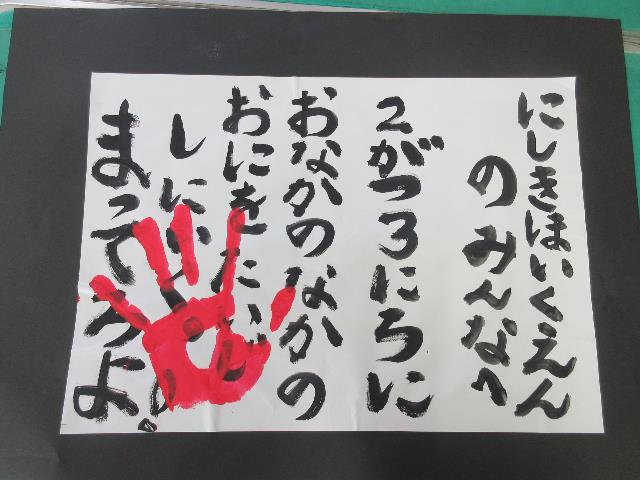 にしきほいくえん
のみんなへ
2がつ3にちに
おなかのなかの
おにをたい
しにい
まってろよ。